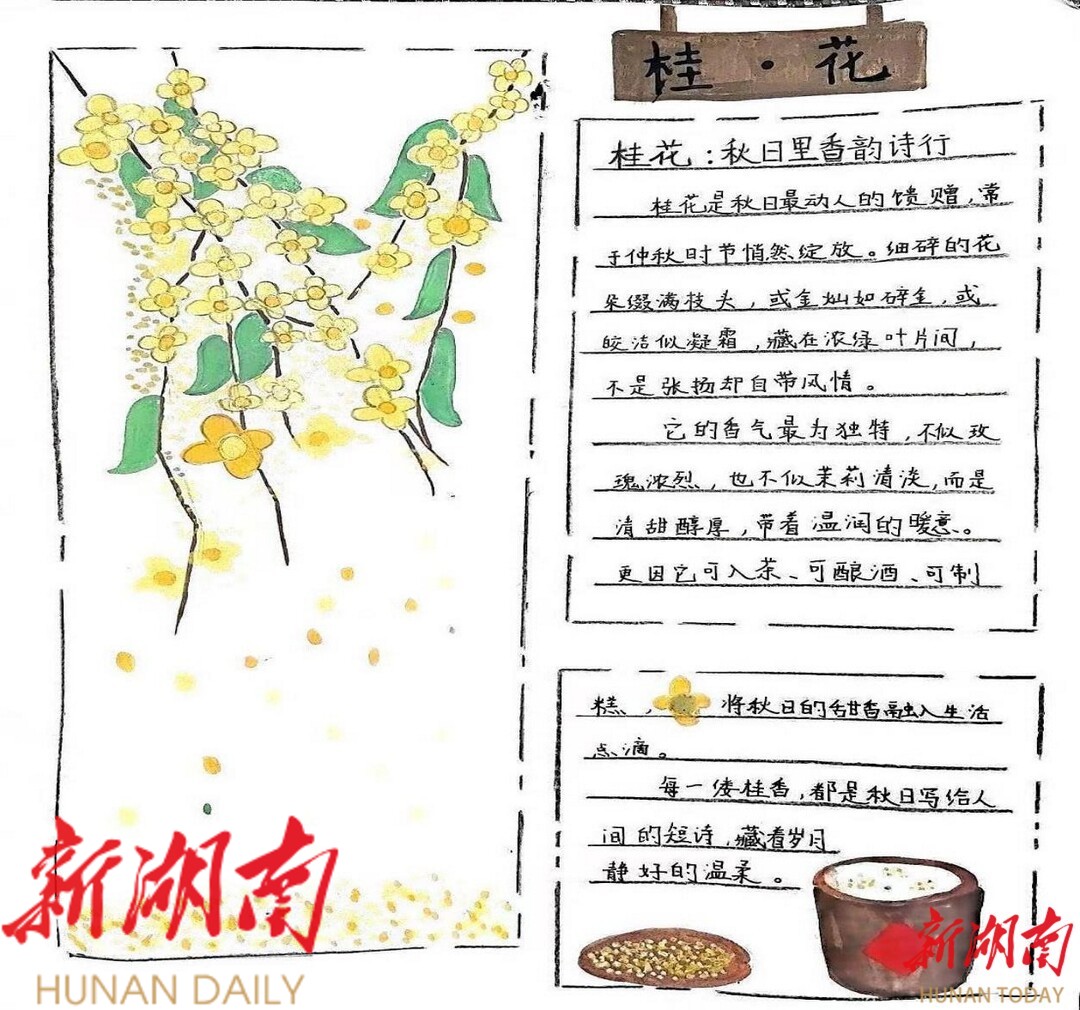 桂·花
桂花：秋日里香韵诗行
桂花是秋日最动人的馈赠，常
于仲秋时节悄然绽放。细碎的花
朵缀满枝头，或金灿如碎金，或
皎洁似凝霜，藏在浓绿叶片间，
不是张扬却自带风情。
它的香气最为独特，不似玫
瑰浓烈，也不似茉莉清淡，而是
清甜醇厚，带着温润的暖意。
更因它可入茶、可酿酒、可制
糕，将秋日的甜香融入生活
点滴。
每一缕桂香，都是秋日写给人
间的短诗，藏着岁月
静好的温柔。
新湖南
HUNAN DAILY
新湖南
HUNAN TODAY